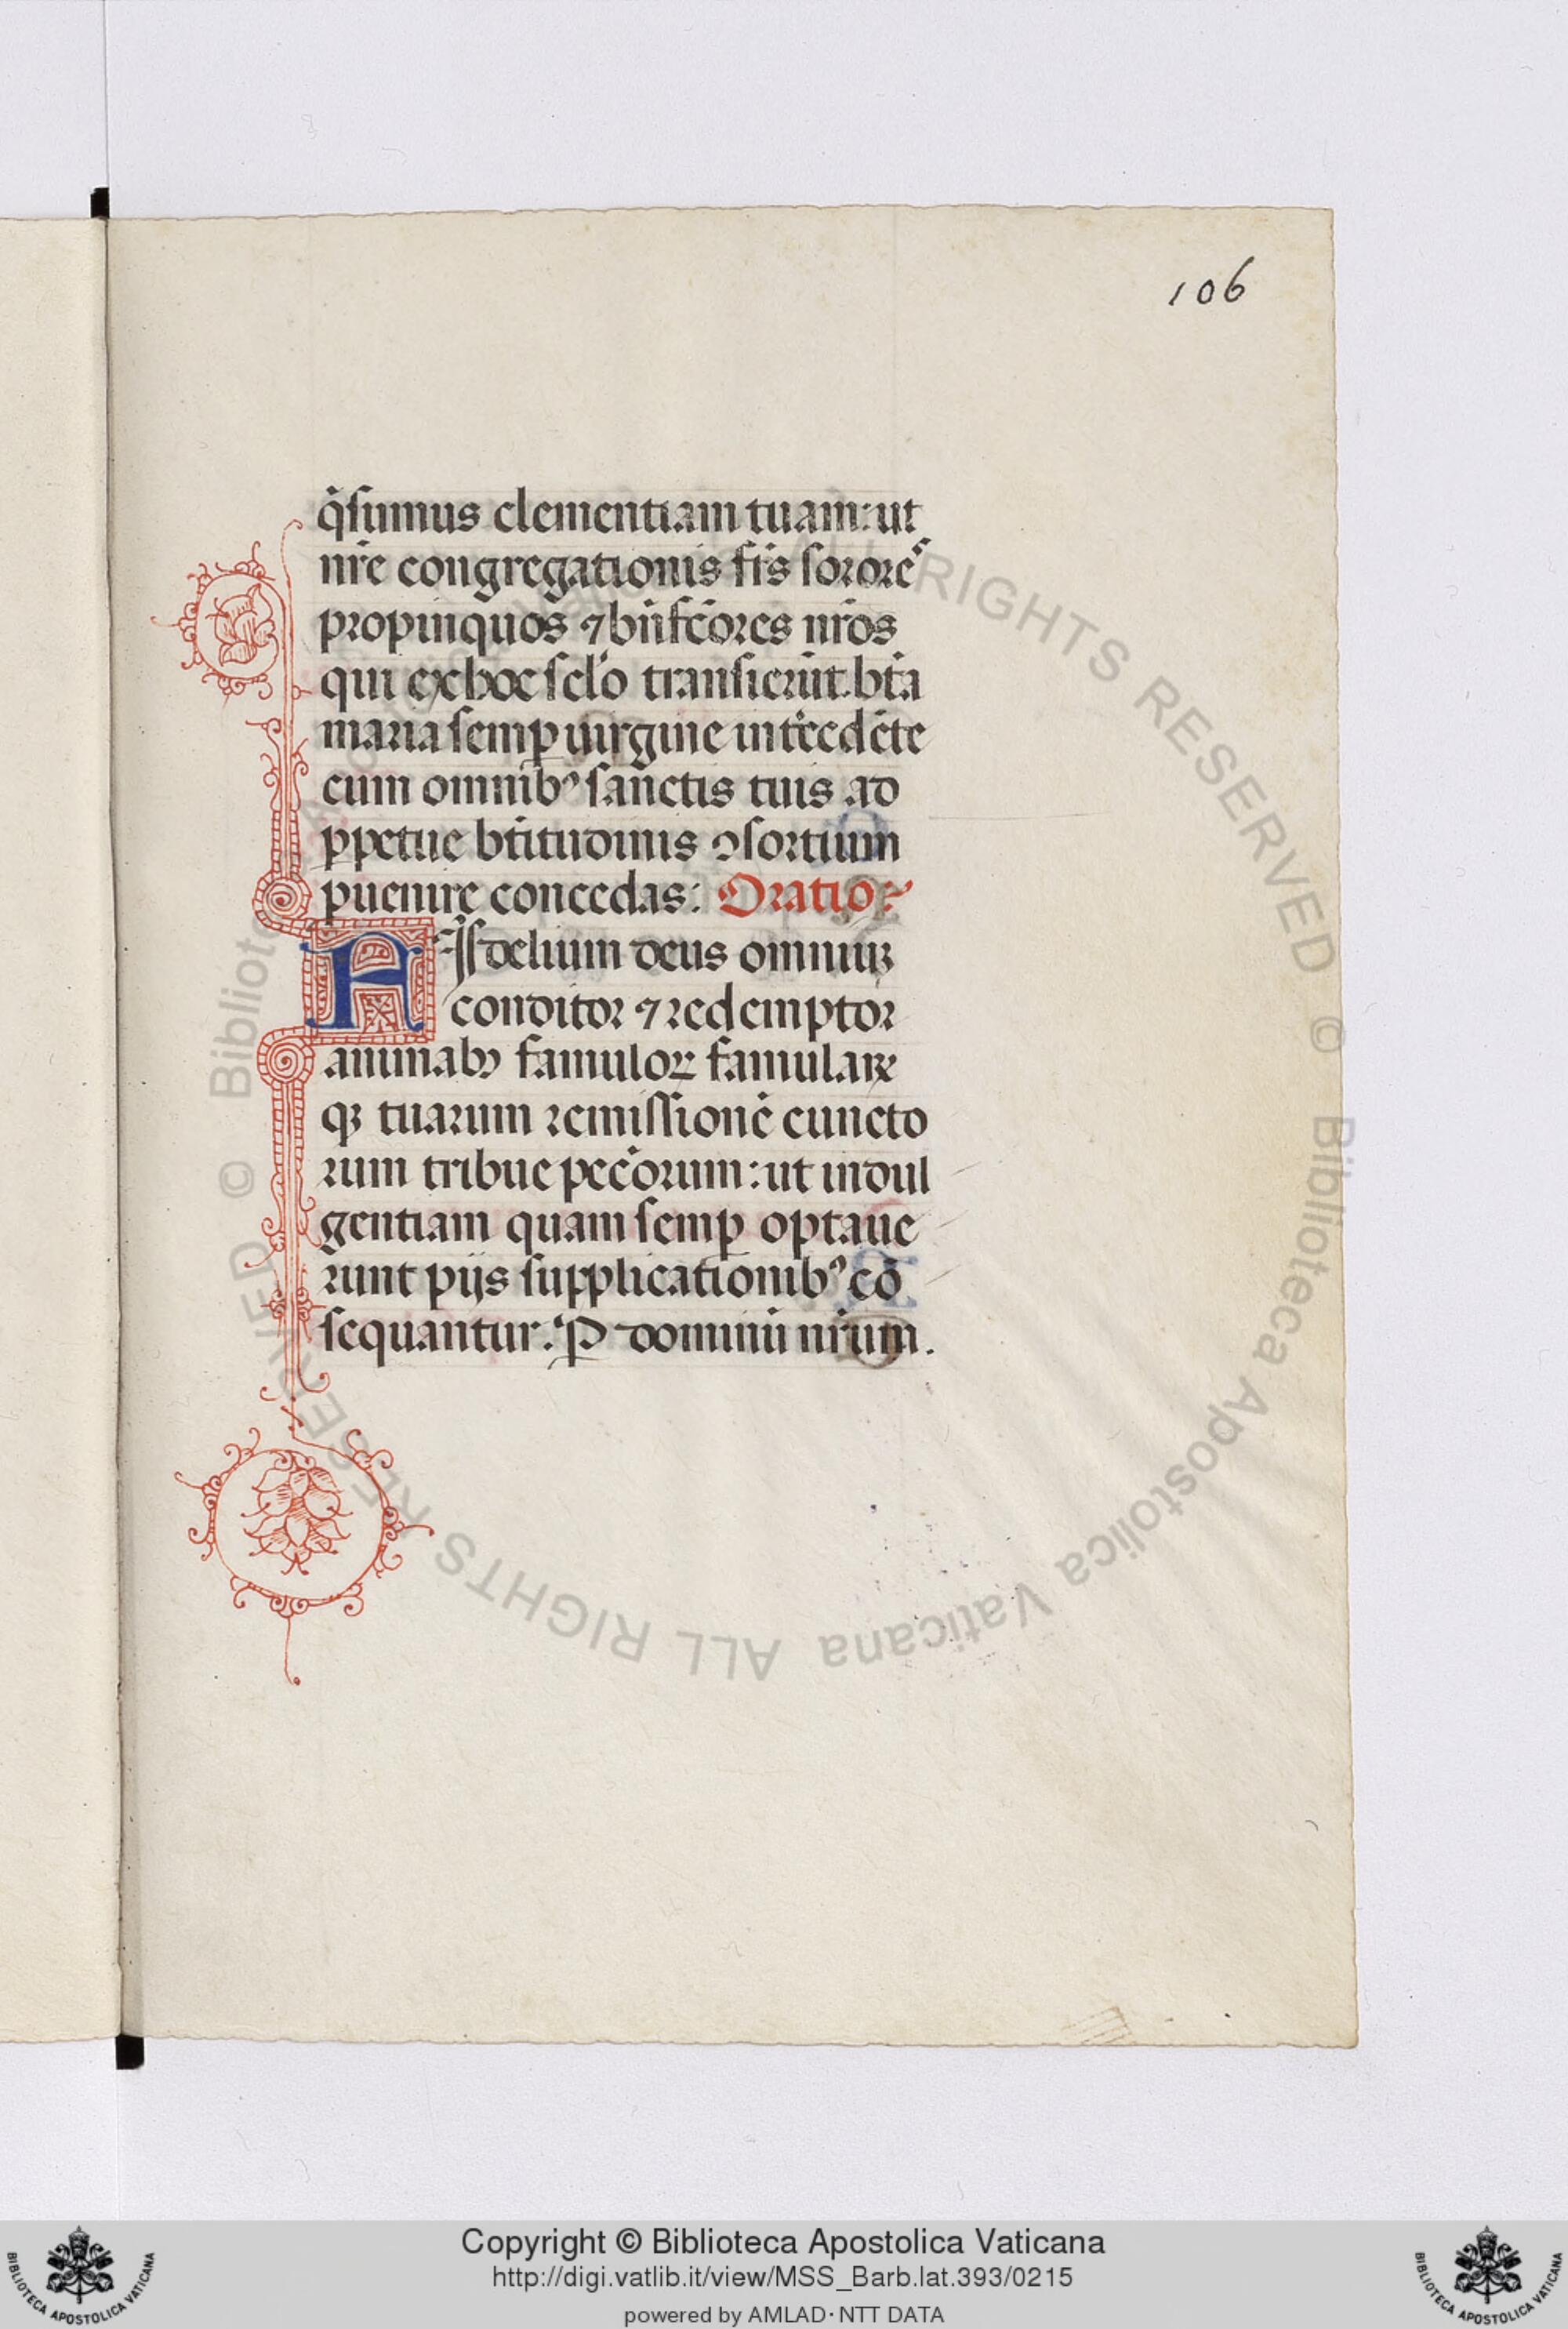 106
q̃sumus clementiam tuam: ut
nr̃e congregationis fr̃s sorores
propinquos ⁊ bñfc̃ores nr̃os
qui ex hoc sc̃lo transierũt. bt̃a
maria semꝑ uirgine int̃cedẽte
cum omnibꝰ sanctis tuis ad
ꝑpetue bt̃itudinis ꝯsortium
ꝑuenire concedas: Oratio
Fidelium deus omniuꝫ
conditor ⁊ redemptor
animabꝫ famuloꝝ famulaꝝ
qꝫ tuarum remissionẽ cuncto
rum tribue pecc̃orum: ut indul
gentiam quam semꝑ optaue
runt pijs supplicationibꝰ cõ
sequantur. P dominũ nr̃um.
© Biblioteca Apostolica Vaticana ALL RIGHTS RESERVED © Biblioteca Apostolica Vaticana ALL RIGHTS RESERVED
Copyright © Biblioteca Apostolica Vaticana
http://digi.vatlib.it/view/MSS_Barb.lat.393/0215
powered by AMLAD·NTT DATA
BIBLIOTECA APOSTOLICA VATICANA
BIBLIOTECA APOSTOLICA VATICANA